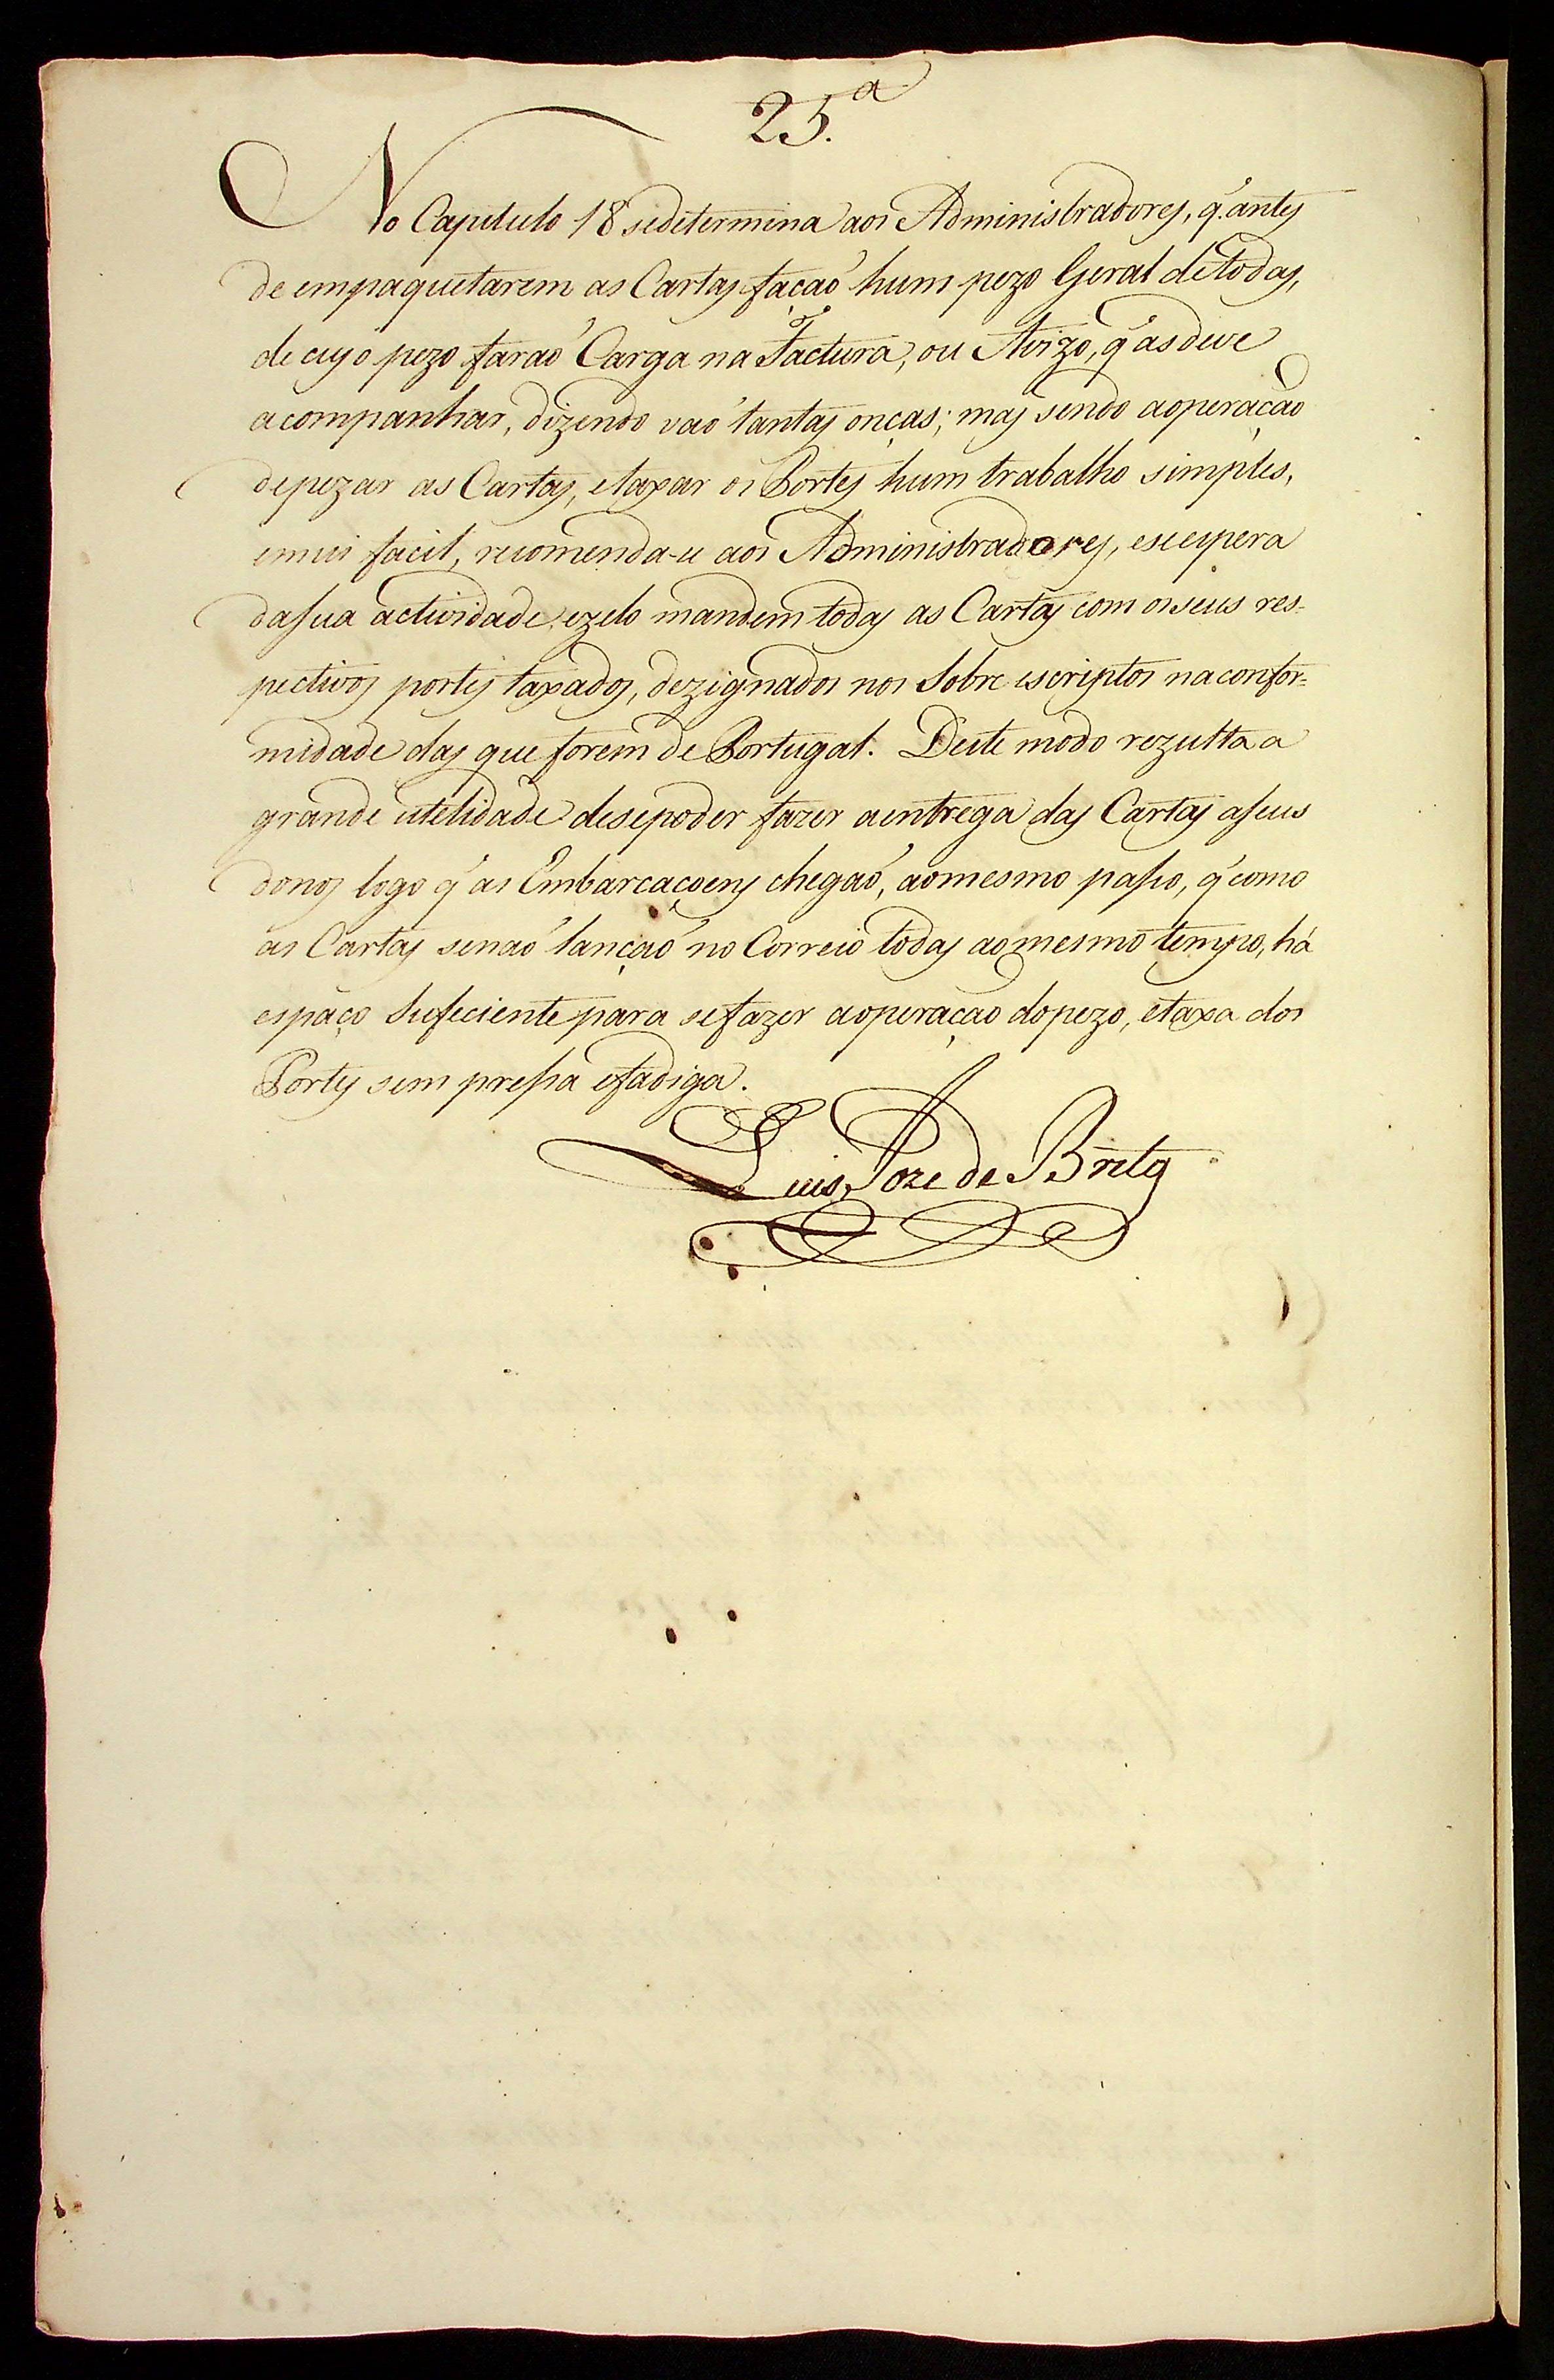 25.ª
No Capitulo 18 sedetermina aos Administradores, q̃ antes
de empaquetarem as Cartas façaõ hum pezo Geral detodas,
de cujo pezo faraõ Carga na Factura, ou Avizo, q̃ as deve
acompanhar, dizendo vaõ tantas onças; mas sendo aoperação
depezar as Cartas, etaxar os Portes hum trabalho simples,
emui facil, recomenda-se aos Administradores, eseespera
dasua actividade, ezelo mandem todas as Cartas com osseus res-
pectivos portes taxados, dezignados nos Sobre escriptos naconfor=
midade das que forem de Portugal. Deste modo rezulta a
grande utelidade desepoder fazer aentrega das Cartas aseus
donos logo q̃ as Embarcaçoens chegaõ, aomesmo passo, q̃ como
as Cartas senaõ lançaõ no Correio todas aomesmo tempo, há
espaço Suficiente para sefazer aoperaçao dopezo, etaxa dos
Portes sem pressa efadiga.
Luis Joze de Brito